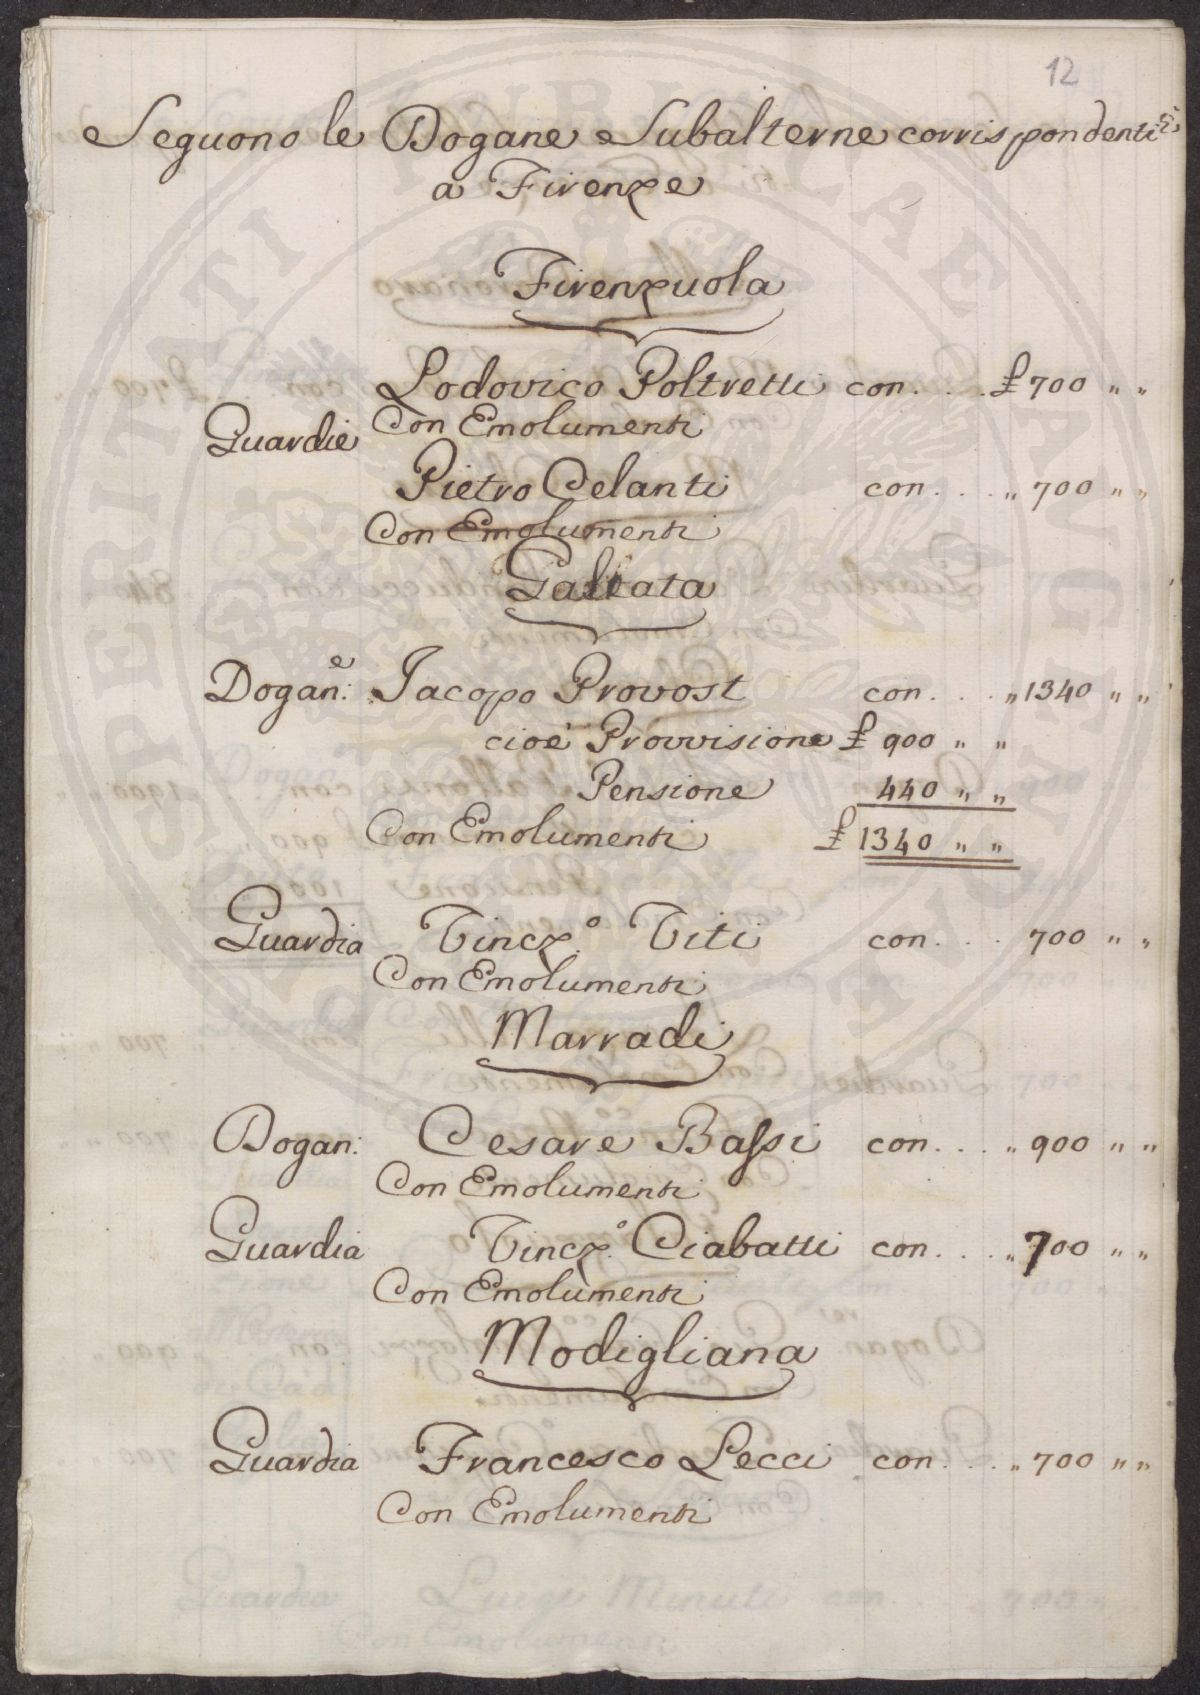 12
Seguono le Dogane Subalterne corrispondenti
a Firenze
Firenzuola
Lodovico Poltretti con . . . £ 700 " "
Con Emolumenti
Guardie
Pietro Celanti con . . . " 700 " "
Con Emolumenti
Galeata
Dogan:e Jacopo Provost con . . . " 1340 " "
cioè Provvisione £ 900 " "
Pensione 440 " "
Con Emolumenti £ 1340 " "
Guardia Vincz.o Titi con . . . 700 " "
Con Emolumenti
Marradi
Dogan: Cesare Baſsi con . . . " 900 " "
Con Emolumenti
Guardia Vincz.o Ciabatti con . . . " 700 " "
Con Emolumenti
Modigliana
Guardia Francesco Lecci con . . . " 700 " "
Con Emolumenti
Guardia Luigi Minuti con 700
Con Emolumenti
PROSPERITATI PUBLICAE AUGENDAE